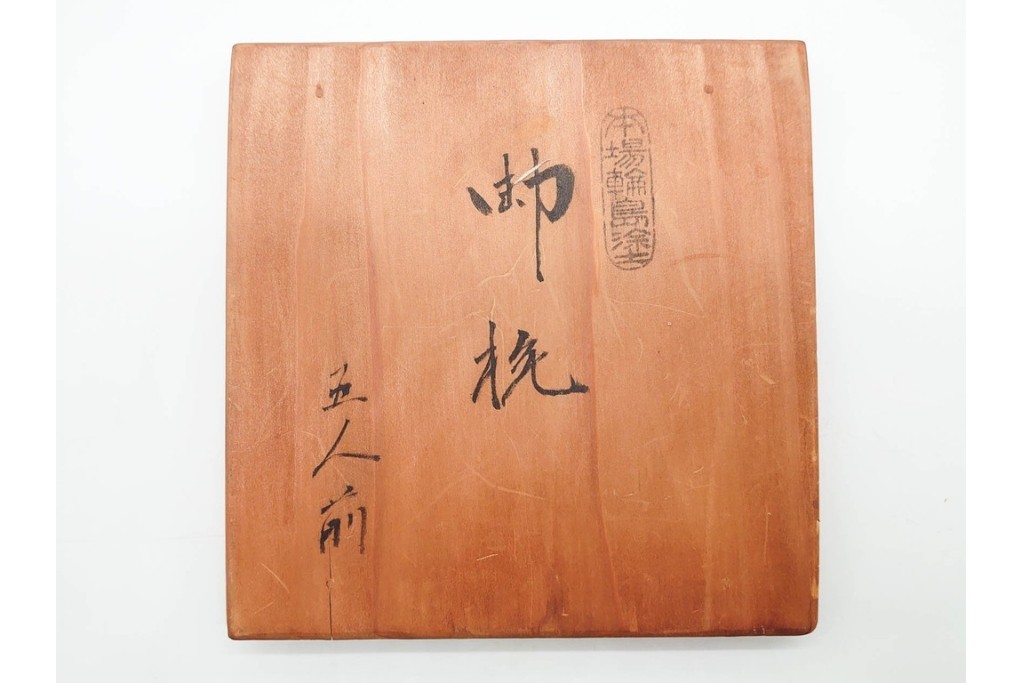 本場輪島塗
御椀
五人前